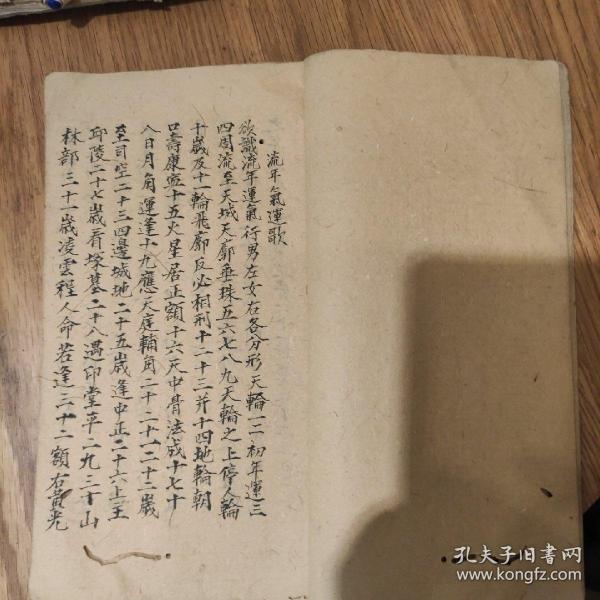 流年氣運歌
欲識流年運氣行男左女右各分形天輪一二初年運三
四周流至天城天廓垂珠五六七八九天輪之上停人輪
十歲及十一輪飛廓反必相刑十二十三并十四地輪朝
口壽康寧十五火星居正額十六天中骨法成十七十
八日月角運逢十九應天庭輔角二十二十一二十二歲
至司空二十三四邊城地二十五歲逢中正二十六上主
邱陵二十七歲看塚墓二十八遇印堂平二九三十山
林部三十一歲凌雲程人命若逢三十二額右黃光
孔夫子旧书网
www.kongfz.com